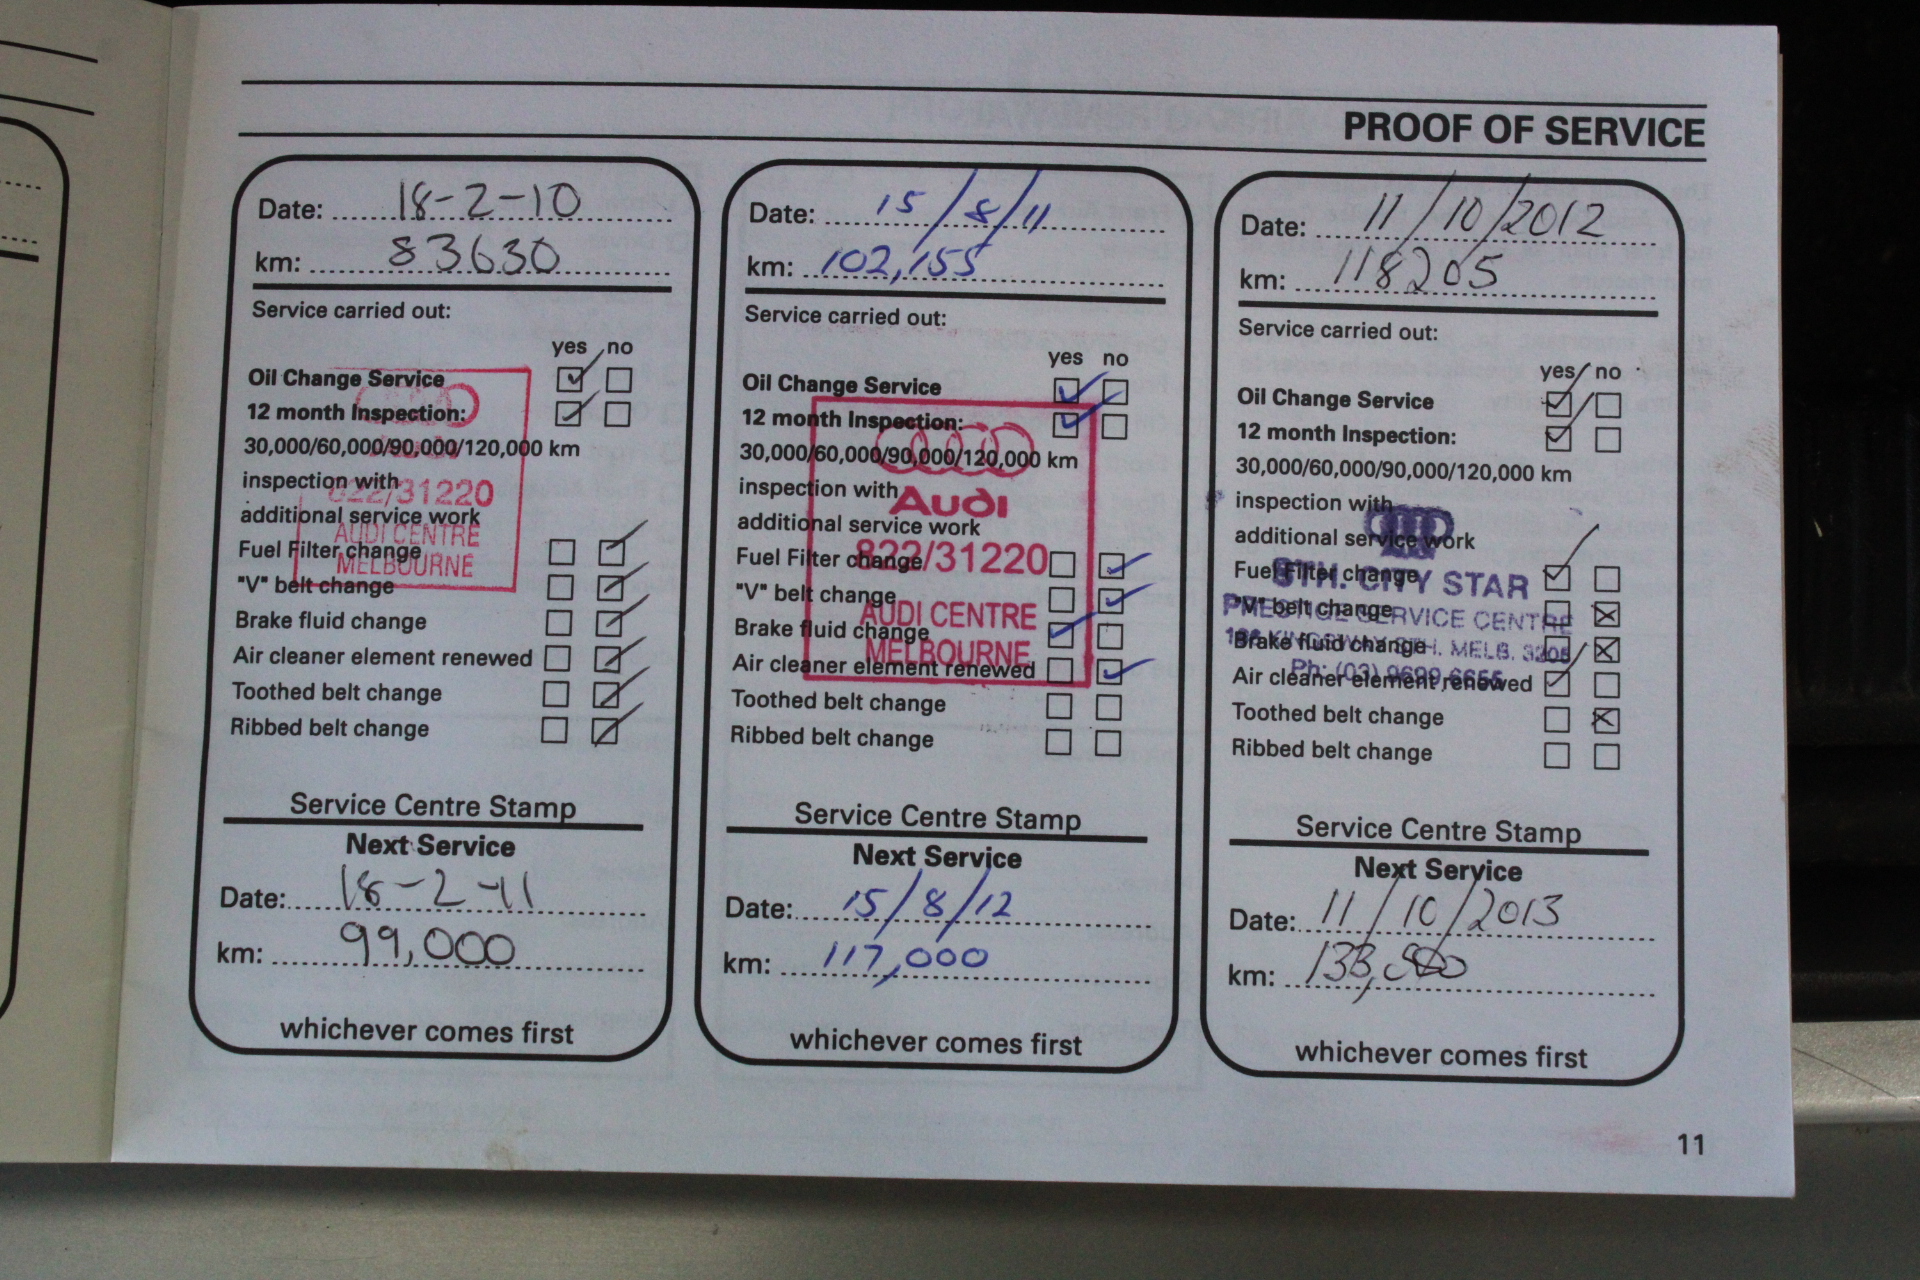 PROOF OF SERVICE
Date: 18-2-10
km: 83630
Service carried out:
yes no
Oil Change Service
12 month Inspection:
30,000/60,000/90,000/120,000 km
inspection with
additional service work
Fuel Filter change
"V" belt change
Brake fluid change
Air cleaner element renewed
Toothed belt change
Ribbed belt change
Audi
822/31220
AUDI CENTRE
MELBOURNE
Service Centre Stamp
Next Service
Date: 18-2-11
km: 99,000
whichever comes first
Date: 15/8/11
km: 102,155
Service carried out:
yes no
Oil Change Service
12 month Inspection:
30,000/60,000/90,000/120,000 km
inspection with
additional service work
Fuel Filter change
"V" belt change
Brake fluid change
Air cleaner element renewed
Toothed belt change
Ribbed belt change
Audi
822/31220
AUDI CENTRE
MELBOURNE
Service Centre Stamp
Next Service
Date: 15/8/12
km: 117,000
whichever comes first
Date: 11/10/2012
km: 118205
Service carried out:
yes no
Oil Change Service
12 month Inspection:
30,000/60,000/90,000/120,000 km
inspection with
additional service work
Fuel Filter change
"V" belt change
Brake fluid change
Air cleaner element renewed
Toothed belt change
Ribbed belt change
STH. CITY STAR
PRESTIGE SERVICE CENTRE
KINGSWAY STH. MELB. 3205
Ph: (03) 9699 6655
Service Centre Stamp
Next Service
Date: 11/10/2013
km:
whichever comes first
11